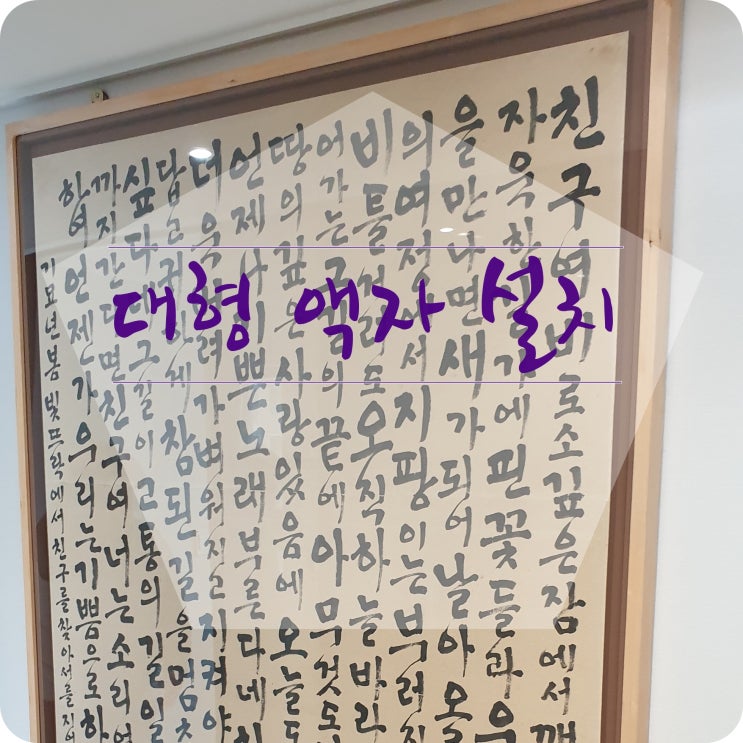 대형 액자 설치
친구여 비로소 깊은 잠에서 깨
자욱한 가에 핀 꽃들과 우
을 만나면 새가 되어 날아올
의 여정에서 지팡이는 부러지
비틀거려도 오직 하늘 바라
어가는 그 길의 끝에 아무것도
땅의 깊은 사랑 있음에 오늘도
언제나 기쁜 노래 부른다네
가벼워지고 지켜야
답고 귀하게 참된 길을 멈추
싶다 그 길이 고통의 길일
까지 간다면 친구여 너는 소리 없
하여 언젠가 우리는 기쁨으로 하
기묘년 봄빛 뜨락에서 친구를 찾아서를 지어